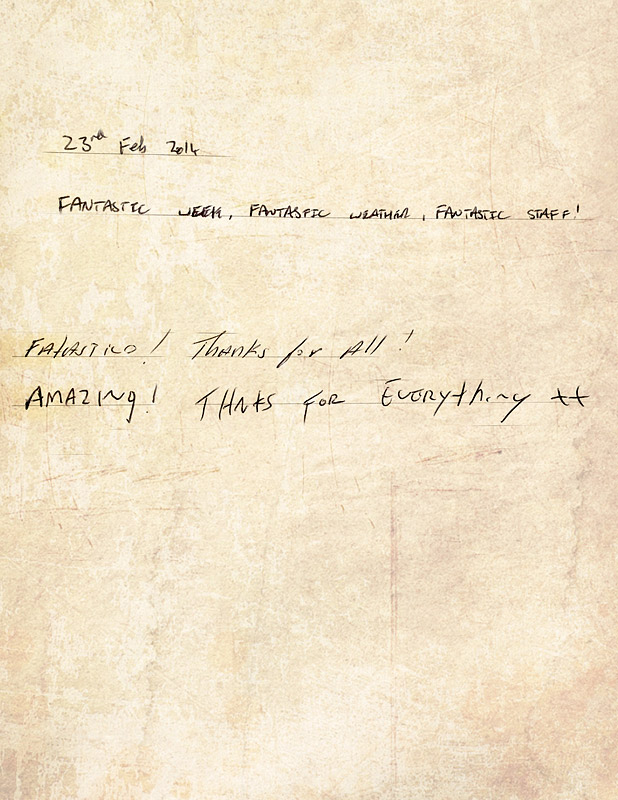 23rd Feb 2014
FANTASTIC WEEK, FANTASTIC WEATHER, FANTASTIC STAFF!
FATASTICO! Thanks for All!
AMAZINg! THNKS FOR EVERYthing ++